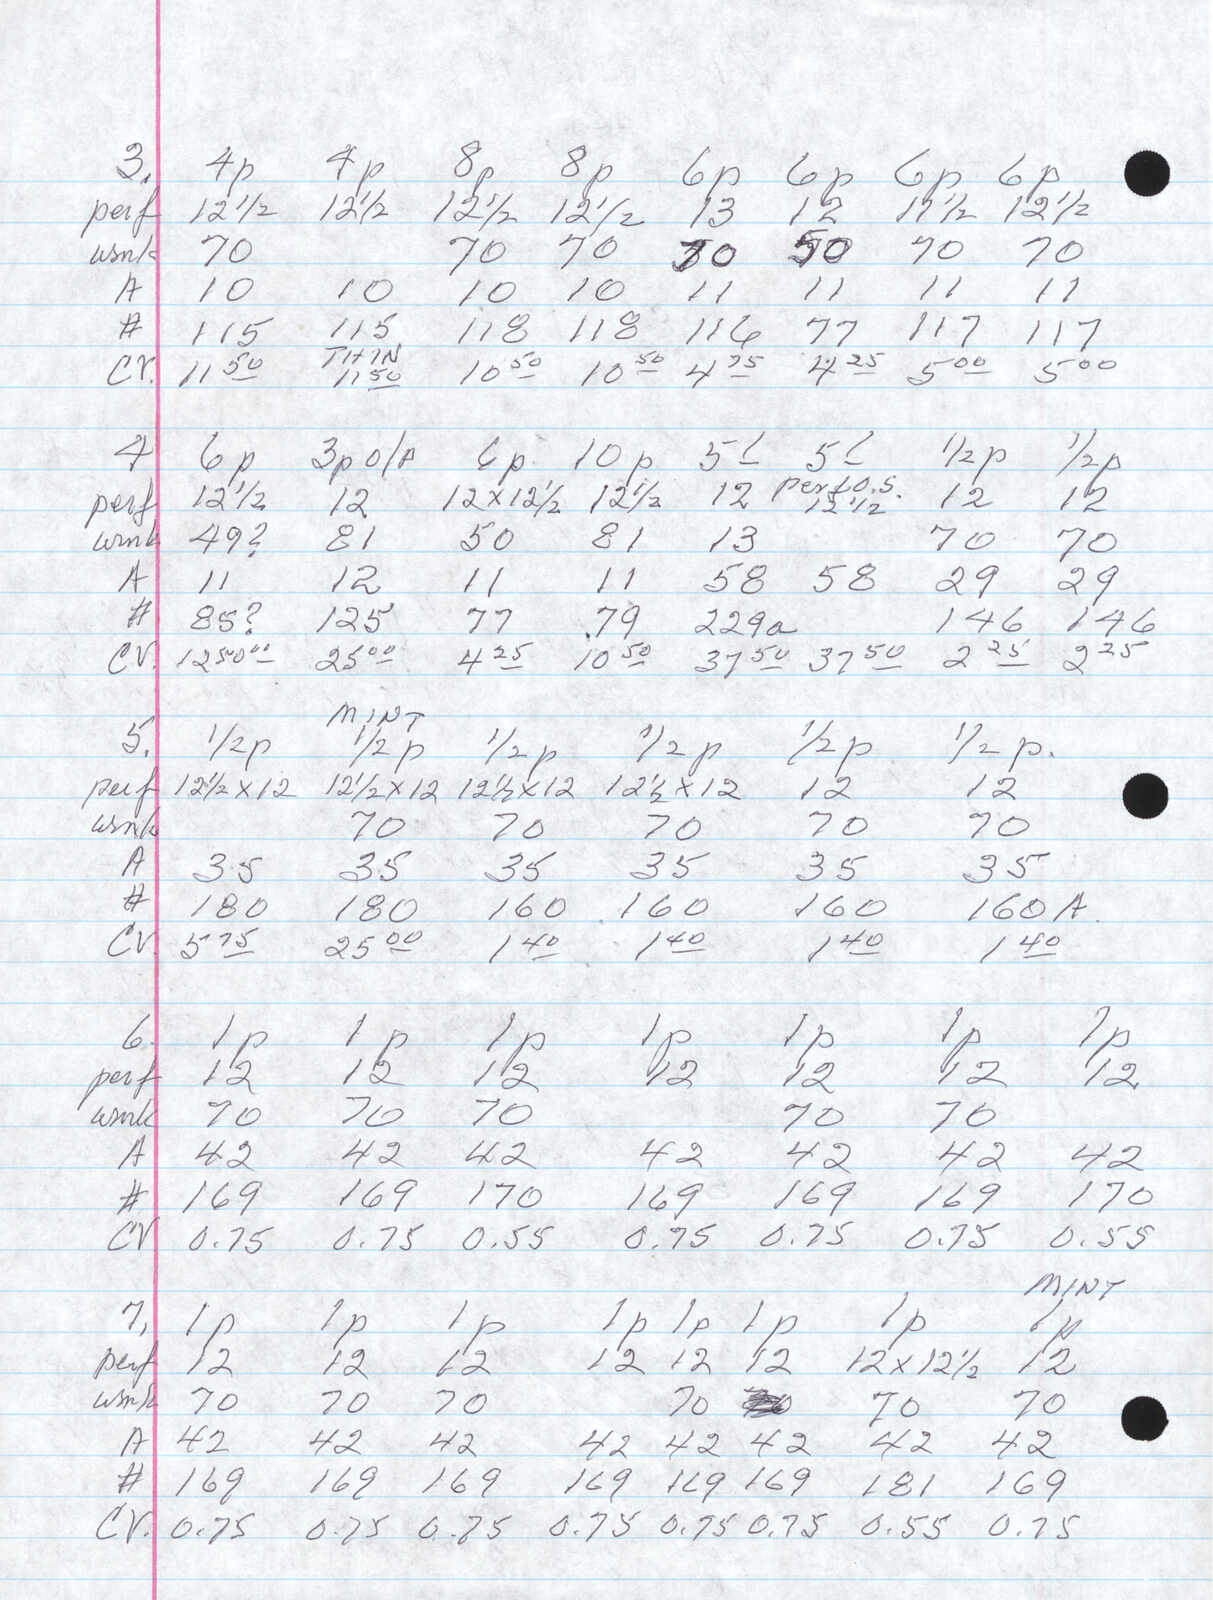 3. 4p 4p 8p 8p 6p 6p 6p 6p
perf 12 1/2 12 1/2 12 1/2 12 1/2 13 12 11 1/2 12 1/2
wmk 70 70 70 50 70 70
A 10 10 10 10 11 11 11 11
# 115 115 118 118 116 77 117 117
THIN
CV. 11 50 11 50 10 50 10 50 4 75 4 25 5 00 5 00
4 6p 3p O/A 6p. 10p 5£ 5£ 1/2p 1/2p
perf 12 1/2 12 12x12 1/2 12 1/2 12 perf O.S. 12 1/2 12 12
wmk 49? 81 50 81 13 70 70
A 11 12 11 11 58 58 29 29
# 85? 125 77 79 229a 146 146
CV. 1250 00 25 00 4 25 10 50 37 50 37 50 2 25 2 25
MINT
5. 1/2p 1/2p 1/2p 1/2p 1/2p 1/2p.
perf 12 1/2x12 12 1/2x12 12 1/2x12 12 1/2x12 12 12
wmk 70 70 70 70 70
A 35 35 35 35 35 35
# 180 180 160 160 160 160A
CV. 5 75 25 00 1 40 1 40 1 40 1 40
6. 1p 1p 1p 1p 1p 1p 1p
perf 12 12 12 12 12 12 12
wmk 70 70 70 70 70
A 42 42 42 42 42 42 42
# 169 169 170 169 169 169 170
CV 0.75 0.75 0.55 0.75 0.75 0.75 0.55
MINT
7, 1p 1p 1p 1p 1p 1p 1p 1p
perf 12 12 12 12 12 12 12x12 1/2 12
wmk 70 70 70 70 70 70
A 42 42 42 42 42 42 42 42
# 169 169 169 169 169 169 181 169
CV. 0.75 0.75 0.75 0.75 0.75 0.75 0.55 0.75